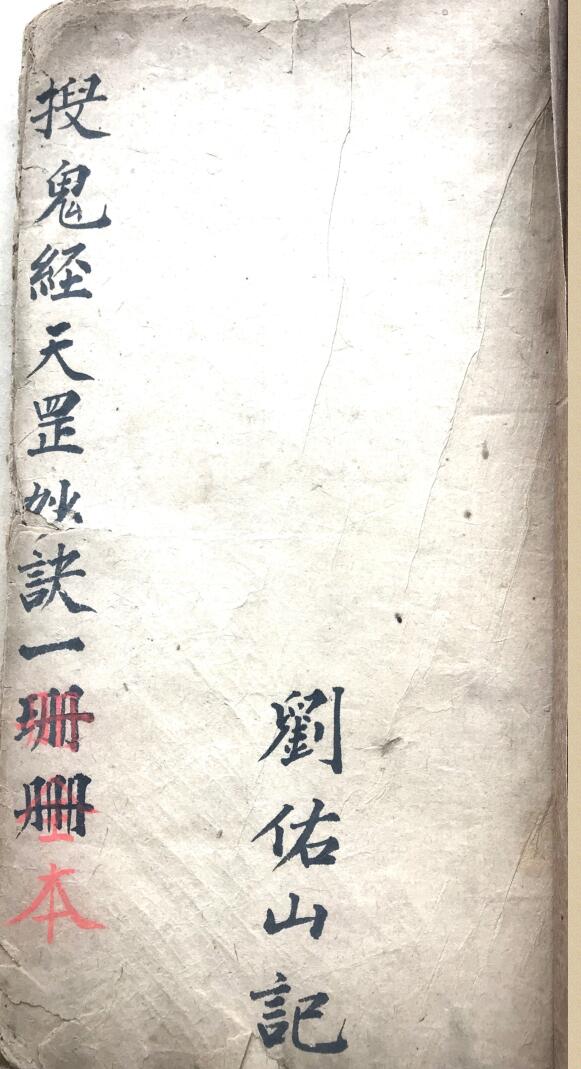 捜鬼経天罡妙訣一珊冊本
劉佑山記